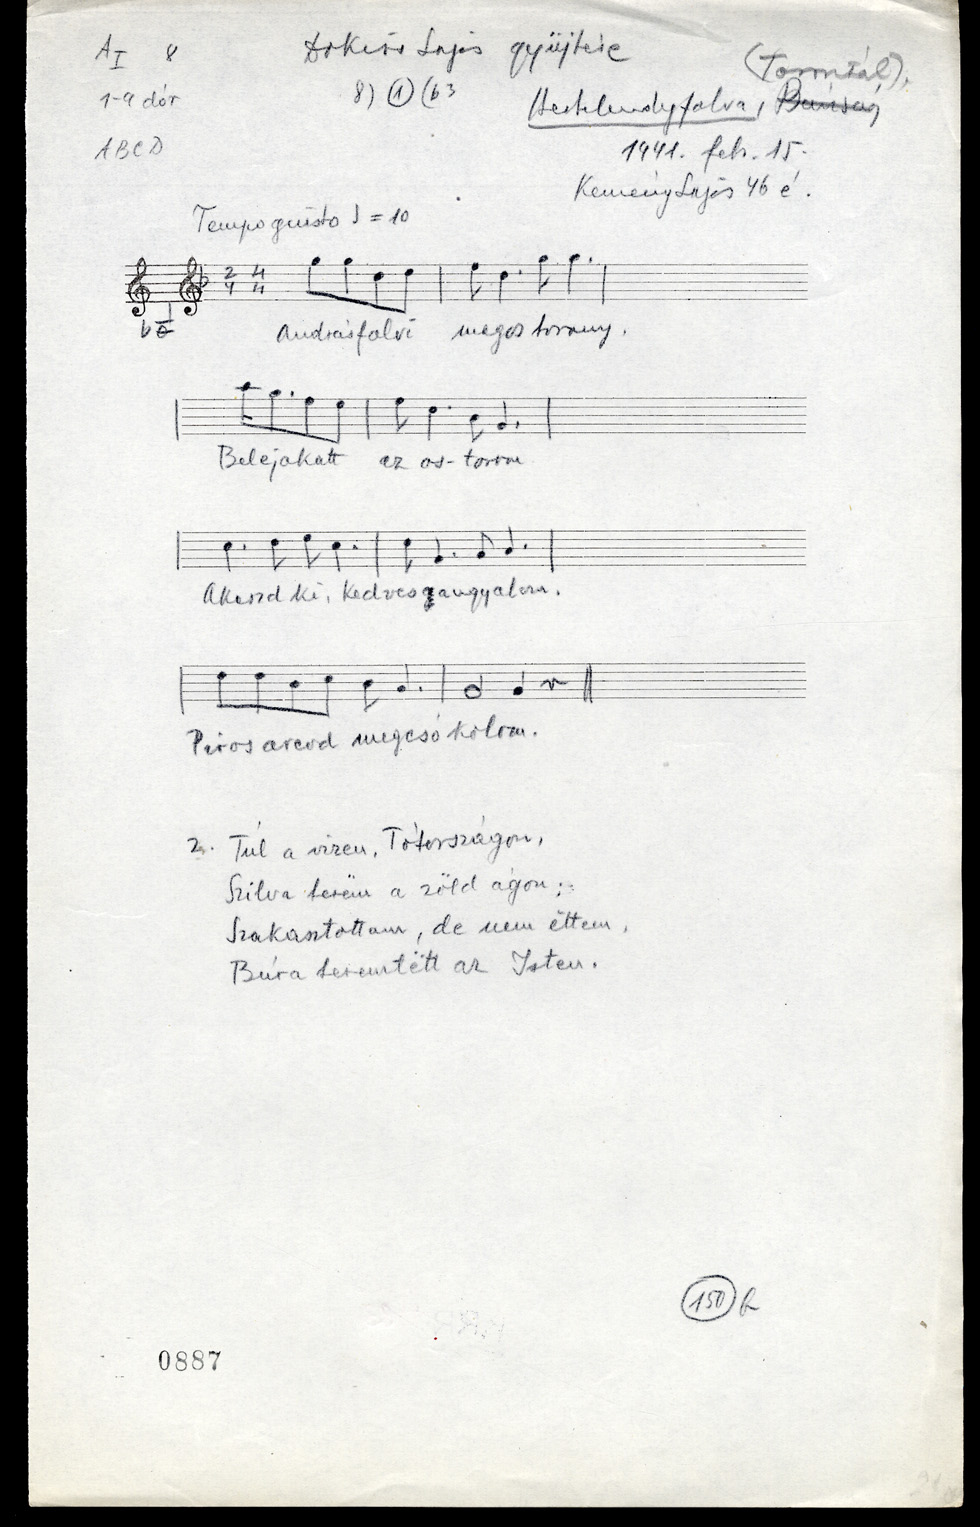 A I 8
Dr Kiss Lajos gyűjtése
(Torontál),
1-9 dór
8) 1 (b3
Hertelendyfalva, Bánság
ABCD
1941. feb. 15.
Kemény Lajos 46 é.
Tempo giusto = 10
2 4
4 4
Andrásfalvi megas torony.
Belejakatt az os-torom
Akaszd ki, kedves gangyalom.
Piros arcod megcsókolom.
2. Túl a vizen, Tótországon,
Szilva terëm a zöld ágon;
Szakasztottam, de nem ëttem,
Búra teremtëtt az Isten.
150 R
0887